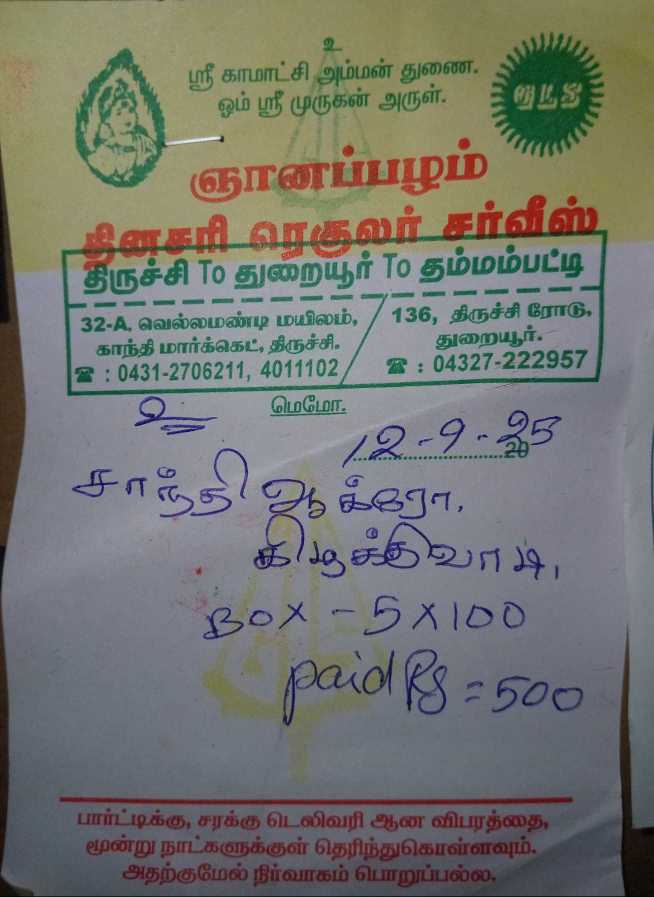 உ
ஸ்ரீ காமாட்சி அம்மன் துணை.
ஓம் ஸ்ரீ முருகன் அருள்.
ஞானப்பழம்
தினசரி ரெகுலர் சர்வீஸ்
திருச்சி To துறையூர் To தம்மம்பட்டி
32-A, வெல்லமண்டி மயிலம்,
காந்தி மார்க்கெட், திருச்சி.
☎ : 0431-2706211, 4011102
136, திருச்சி ரோடு,
துறையூர்.
☎ : 04327-222957
மெமோ.
உ
12-9-25
20
சாந்தி ஆக்ரோ,
BOX - 5 X 100
paid Rs = 500
பார்ட்டிக்கு, சரக்கு டெலிவரி ஆன விபரத்தை,
மூன்று நாட்களுக்குள் தெரிந்துகொள்ளவும்.
அதற்குமேல் நிர்வாகம் பொறுப்பல்ல.